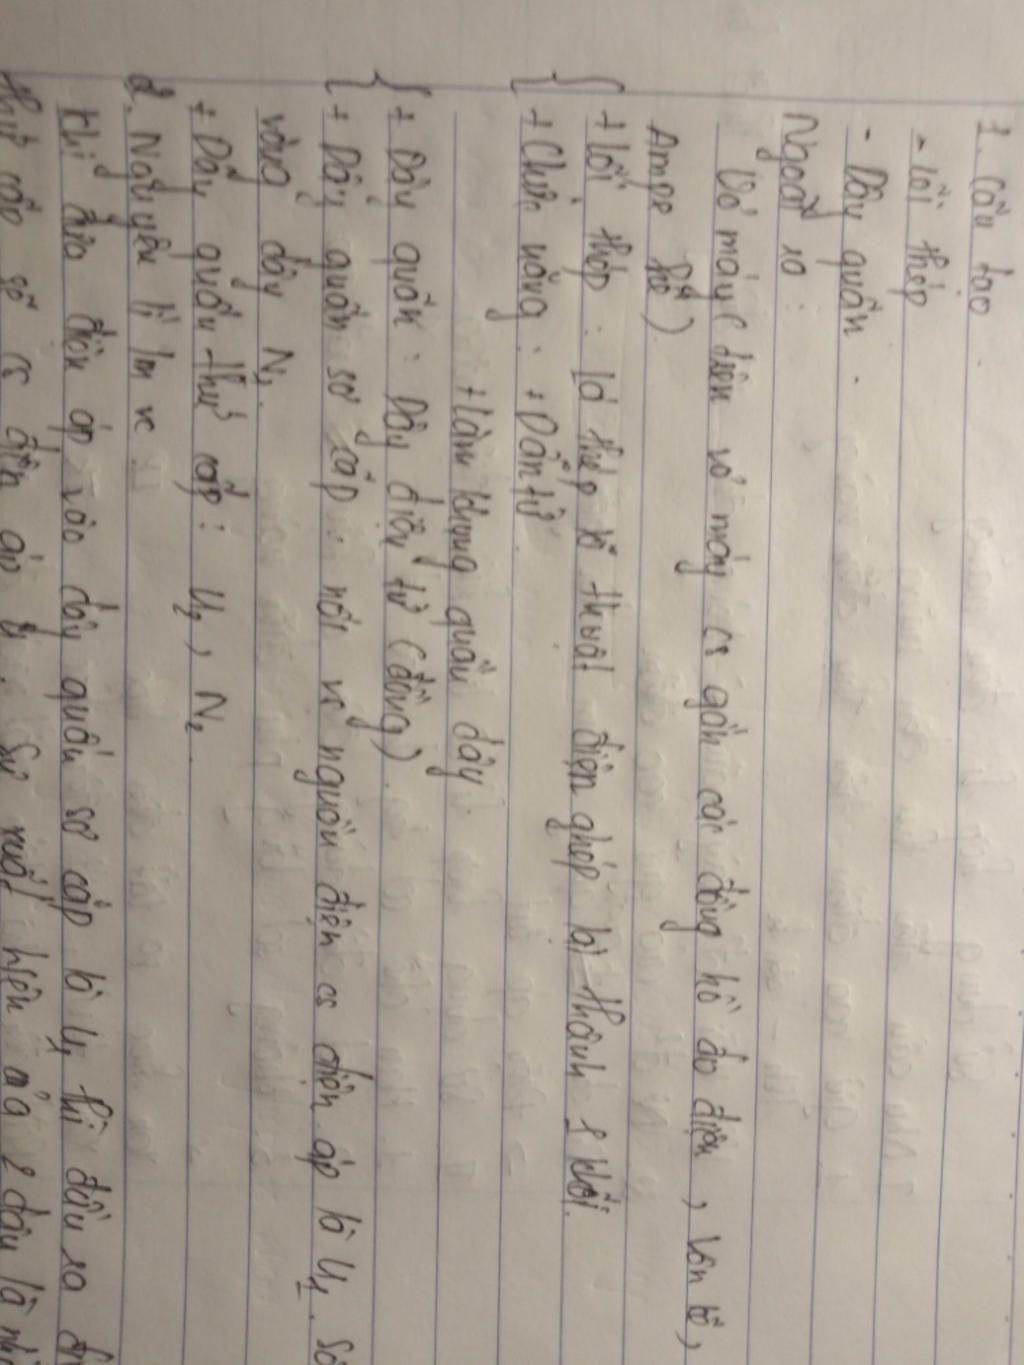 1. Cấu tạo.
- Lõi thép
- Dây quấn.
Ngoài ra:
Vỏ máy (trên vỏ máy cs gắn các đồng hồ đo điện, vôn kế,
Ampe kế)
+ Lõi thép: Lá thép kĩ thuật điện ghép lại thành 1 khối.
+ Chức năng: + Dẫn từ.
+ Làm khung quấn dây.
+ Dây quấn: Dây điện từ (đồng).
+ Dây quấn sơ cấp: nối vs nguồn điện cs điện áp là U1. Số
vòng dây N1.
+ Dây quấn thứ cấp: U2, N2.
2. Nguyên lí lm vc
Khi đưa điện áp vào dây quấn sơ cấp là U1 thì đầu ra
thứ cấp sẽ cs điện áp U. Sự xuất hiện của 2 dây là